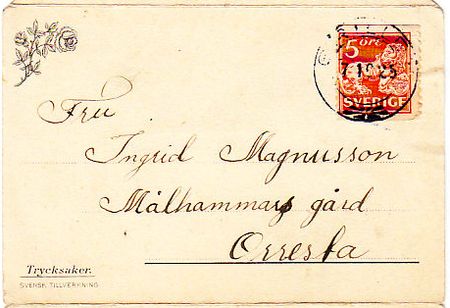 5 ÖRE
7.10.25
SVERIGE
Fru
Ingrid Magnusson
Målhammars gård
Orresta
Trycksaker.
SVENSK TILLVERKNING